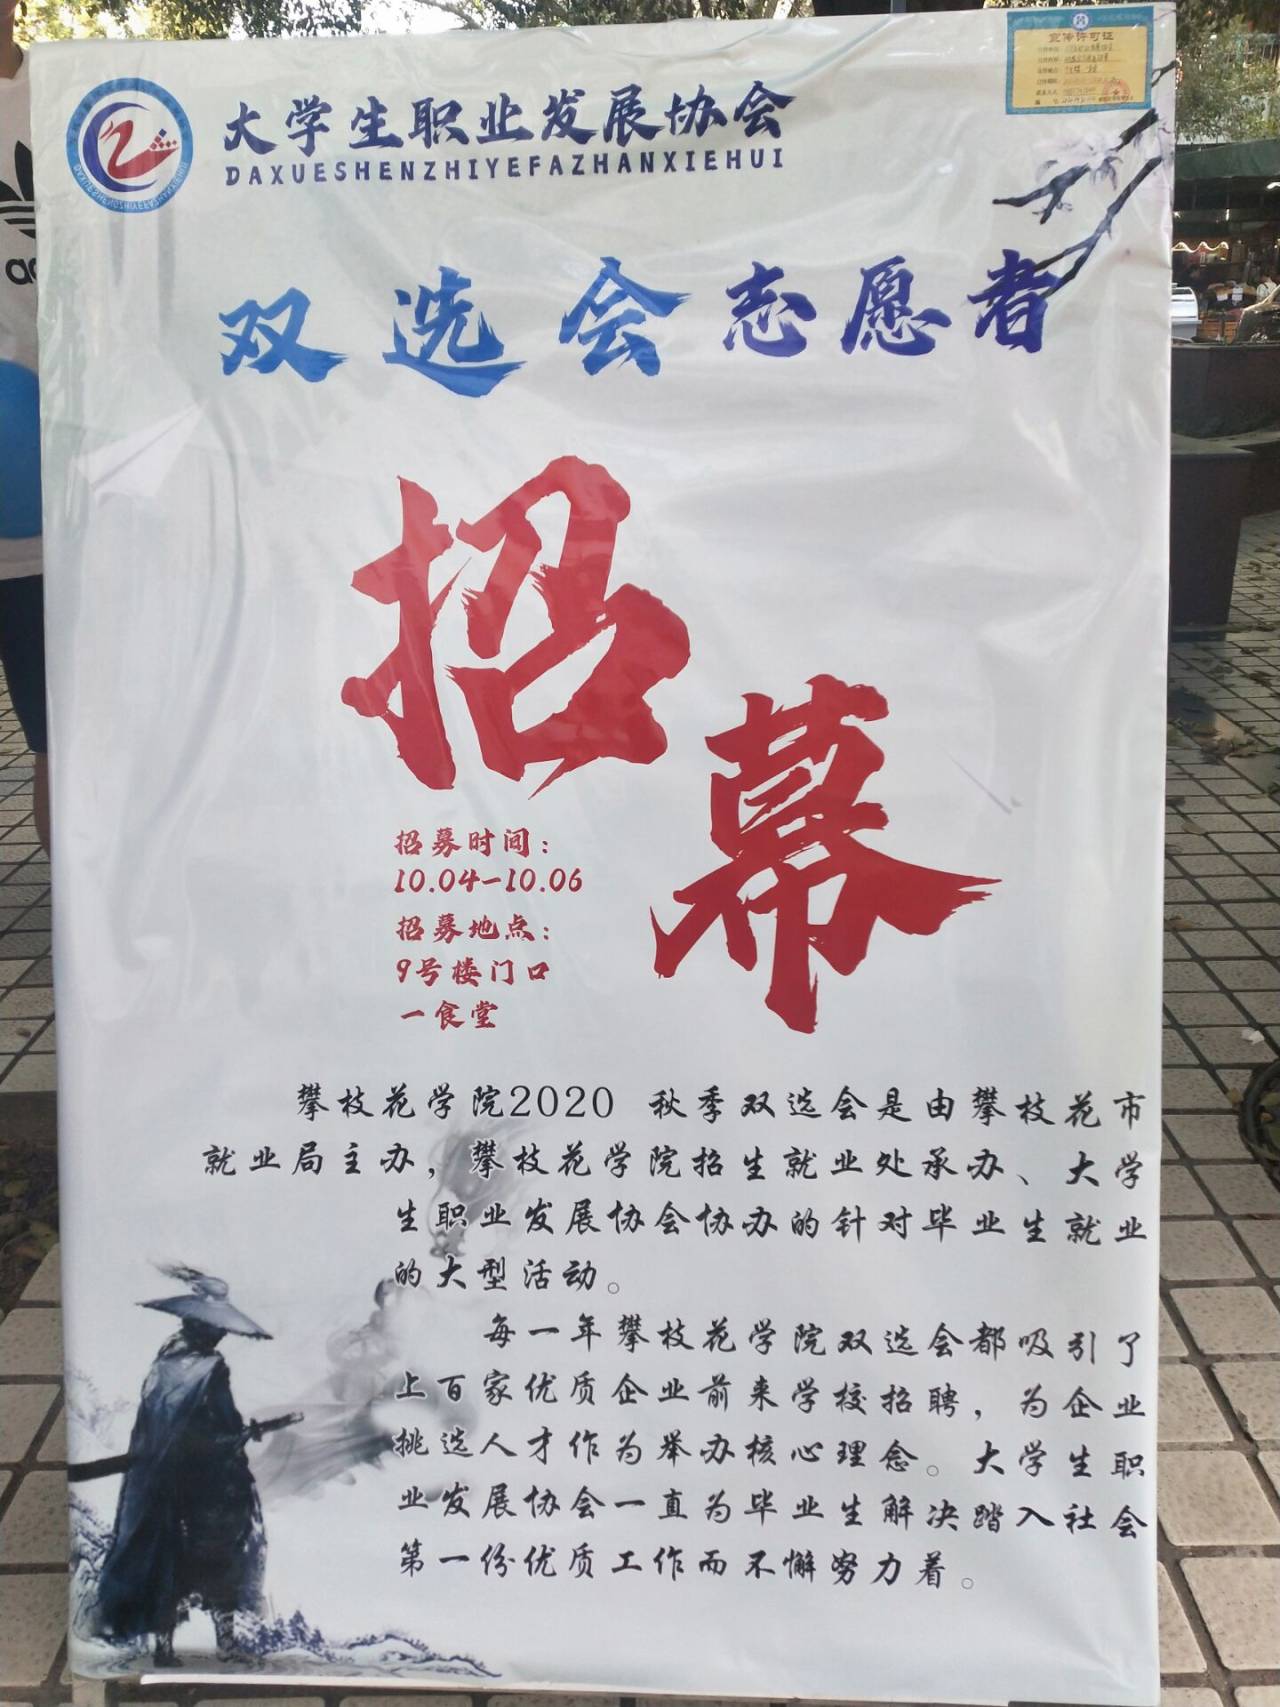 宣传许可证
大学生职业发展协会
DAXUESHENZHIYEFAZHANXIEHUI
双选会志愿者
招
幕
招募时间：
10.04-10.06
招募地点：
9号楼门口
一食堂
攀枝花学院2020 秋季双选会是由攀枝花市
就业局主办，攀枝花学院招生就业处承办、大学
生职业发展协会协办的针对毕业生就业
的大型活动。
每一年攀枝花学院双选会都吸引了
上百家优质企业前来学校招聘，为企业
挑选人才作为举办核心理念。大学生职
业发展协会一直为毕业生解决踏入社会
第一份优质工作而不懈努力着。